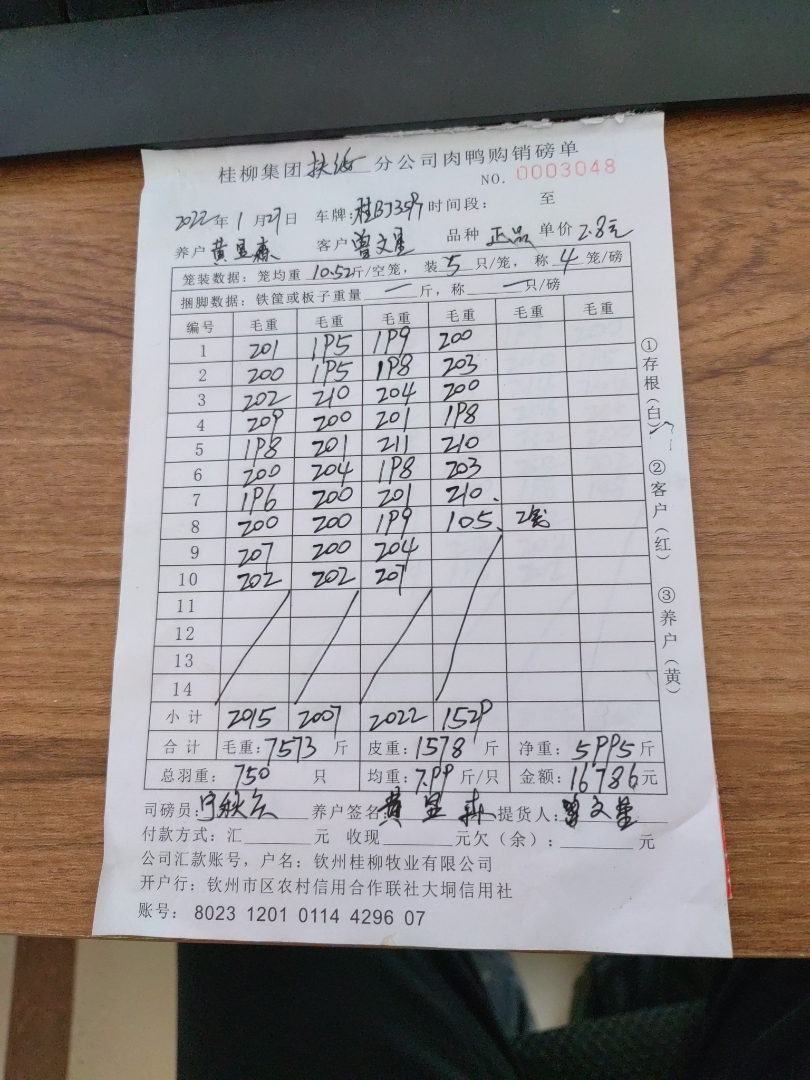 桂柳集团扶绥分公司肉鸭购销磅单
NO. 0003048
2022年1月27日 车牌: 桂BJ359 时间段: 至
养户 黄 客户 曾文 品种 正品 单价 2.8元
笼装数据: 笼均重 10.52斤/空笼, 装5只/笼, 称4笼/磅
捆脚数据: 铁筐或板子重量 一 斤, 称 一 只/磅
编号 毛重 毛重 毛重 毛重 毛重 毛重
1 201 195 199 200
2 200 195 198 203
3 202 210 204 200
4 209 200 201 198
5 198 201 211 210
6 200 204 198 203
7 196 200 201 210
8 200 200 199 105 2笼
9 207 200 204
10 202 202 207
11
12
13
14
小计 2015 2007 2022 1529
合计 毛重: 7573 斤 皮重: 1578 斤 净重: 5995 斤
总羽重: 750 只 均重: 7.99 斤/只 金额: 16786元
司磅员: 养户签名: 黄 提货人: 曾文
付款方式: 汇 元 收现 元欠(余): 元
公司汇款账号, 户名: 钦州桂柳牧业有限公司
开户行: 钦州市区农村信用合作联社大垌信用社
账号: 8023 1201 0114 4296 07
①存根(白)
②客户(红)
③养户(黄)